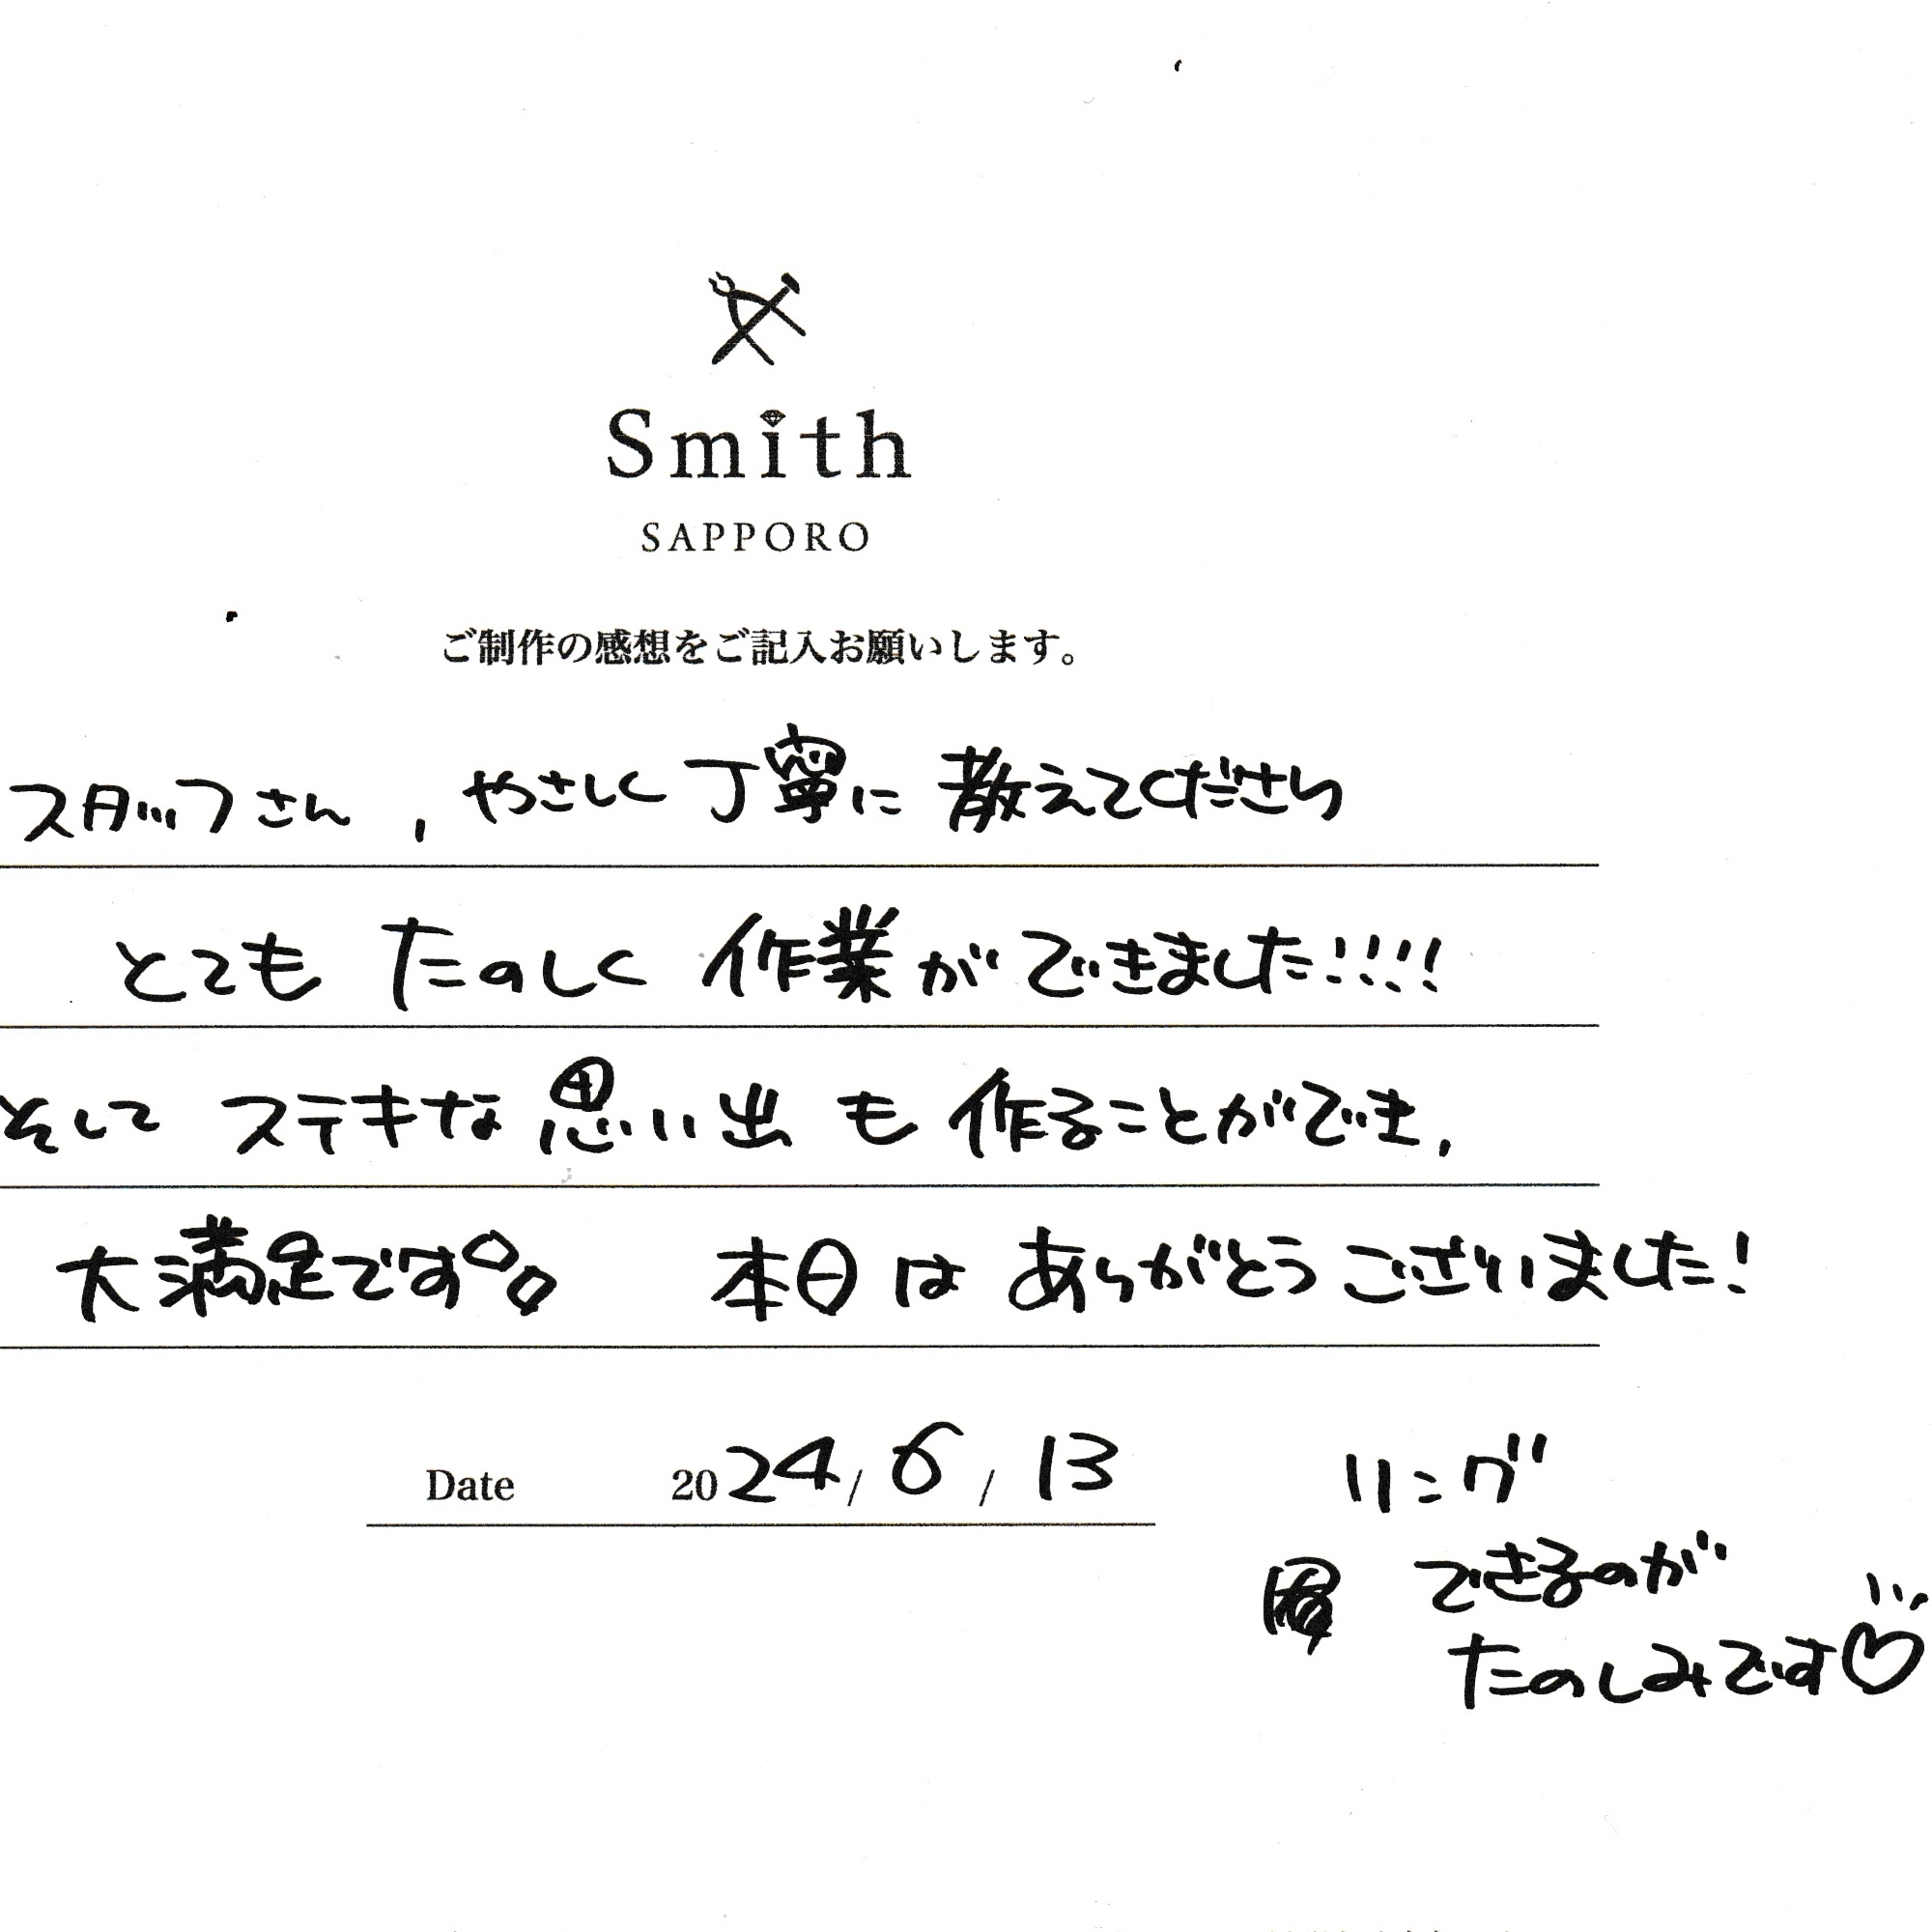 Smith
SAPPORO
ご制作の感想をご記入お願いします。
スタッフさん，やさしく丁寧に教えてくださり
とてもたのしく作業ができました!!!!
そしてステキな思い出も作ることができ，
大満足です。。 本日はありがとうございました!
Date 2024/6/13
リング
できるのが
たのしみです♡